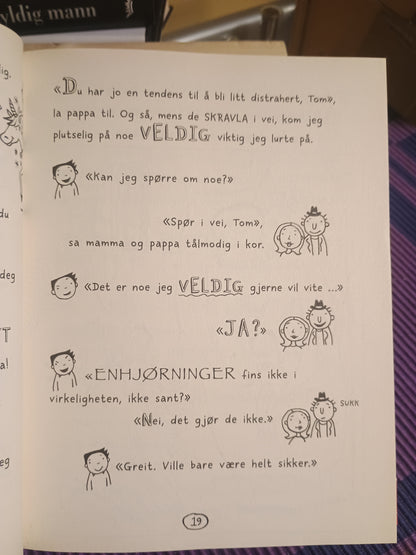 yldig mann
lig.
du
deg
T
a!
eg
«Du har jo en tendens til å bli litt distrahert, Tom»,
la pappa til. Og så, mens de SKRAVLA i vei, kom jeg
plutselig på noe VELDIG viktig jeg lurte på.
«Kan jeg spørre om noe?»
«Spør i vei, Tom»,
sa mamma og pappa tålmodig i kor.
«Det er noe jeg VELDIG gjerne vil vite ...»
«JA?»
«ENHJØRNINGER fins ikke i
virkeligheten, ikke sant?»
SUKK
«Nei, det gjør de ikke.»
«Greit. Ville bare være helt sikker.»
19